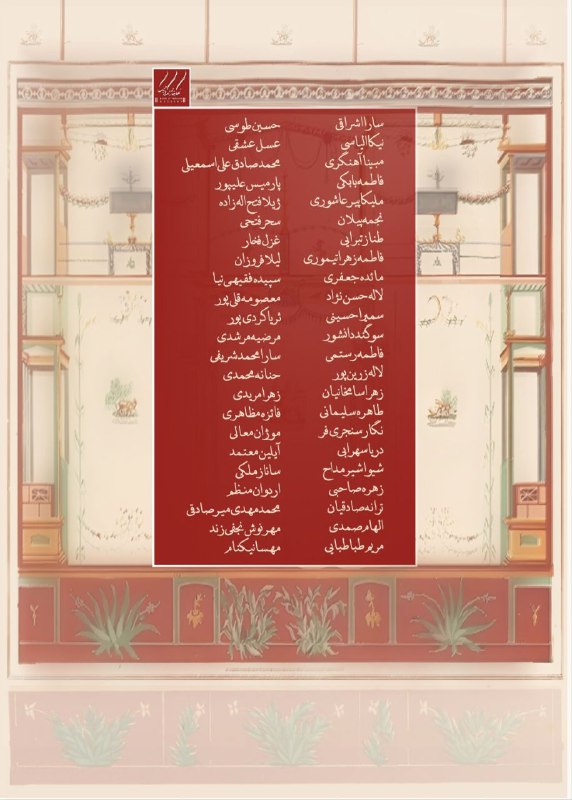 سارا اشراقی
نیکا الیاسی
مبینا آهنگری
فاطمه بابکی
ملیکا پیرعاشوری
نجمه پیلان
طناز ترابی
فاطمه زهرا تیموری
مائده جعفری
لاله حسن نژاد
سمیرا حسینی
سوگند دانشور
فاطمه رستمی
لاله زرین پور
زهرا سامخانیان
طاهره سلیمانی
نگار سنجری فر
دریا سهرابی
شیوا شیرمداح
زهره صاحبی
ترانه صادقیان
الهام صمدی
مریم طباطبایی
حسین طوسی
عسل عشقی
محمدصادق علی اسمعیلی
پارمیس علیپور
ژیلا فتح اله زاده
سحر فتحی
غزل فخار
لیلا فروزان
سپیده فقیهی نیا
معصومه قلی پور
ثریا کردی پور
مرضیه مرشدی
سارا محمدشریفی
حنانه محمدی
زهرا مریدی
فائزه مظاهری
موژان معالی
آیلین معتمد
ساناز ملکی
اردوان منتظم
محمدمهدی میرصادقی
مهرنوش نجفی زند
مهسا نیکنام